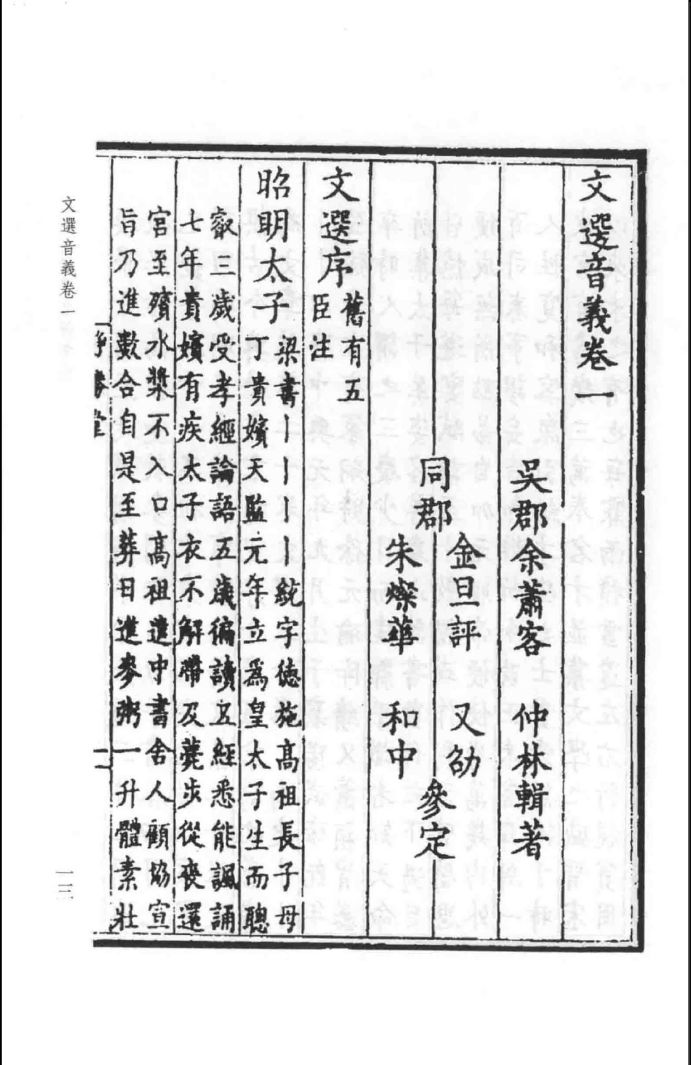 文選音義卷一
吳郡余蕭客　仲林輯著
金旦評　又劬
同郡　參定
朱燦華　和中
文選序舊有五
臣注
昭明太子梁書丨丨丨丨統字德施高祖長子母
丁貴嬪天監元年立爲皇太子生而聰
叡三歲受孝經論語五歲徧讀五經悉能諷誦
七年貴嬪有疾太子衣不解帶及薨步從喪還
宮至殯水漿不入口高祖遣中書舍人顧協宣
旨乃進數合自是至葬日進麥粥一升體素壯
文選音義卷一
一三